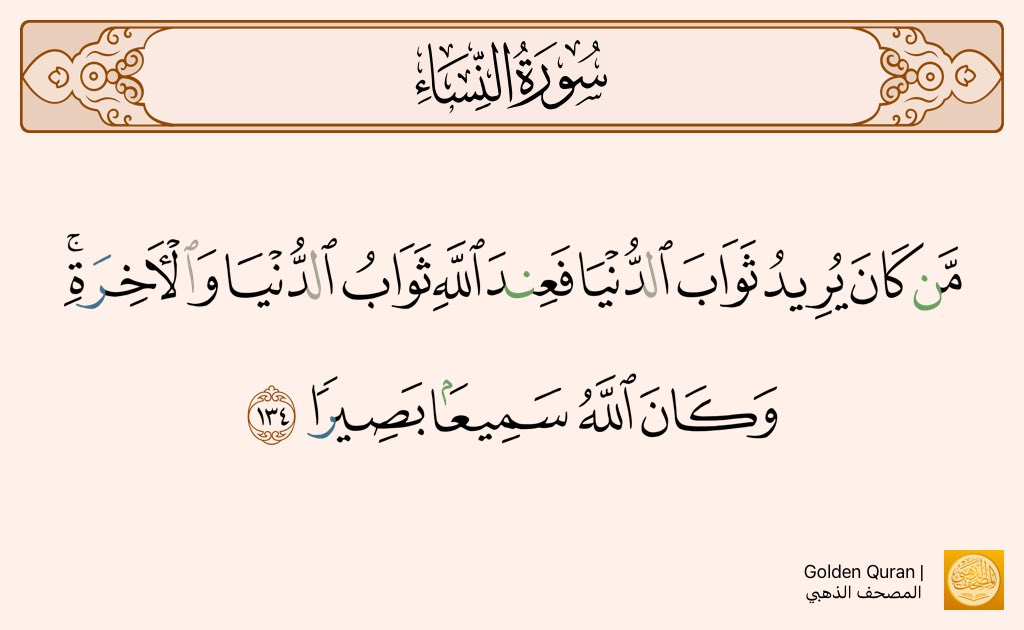 سُورَةُ النِّسَاءِ
مَّن كَانَ يُرِيدُ ثَوَابَ ٱلدُّنْيَا فَعِندَ ٱللَّهِ ثَوَابُ ٱلدُّنْيَا وَٱلْأَخِرَةِۚ
وَكَانَ ٱللَّهُ سَمِيعَۢا بَصِيرًا ١٣٤
Golden Quran |
المصحف الذهبي